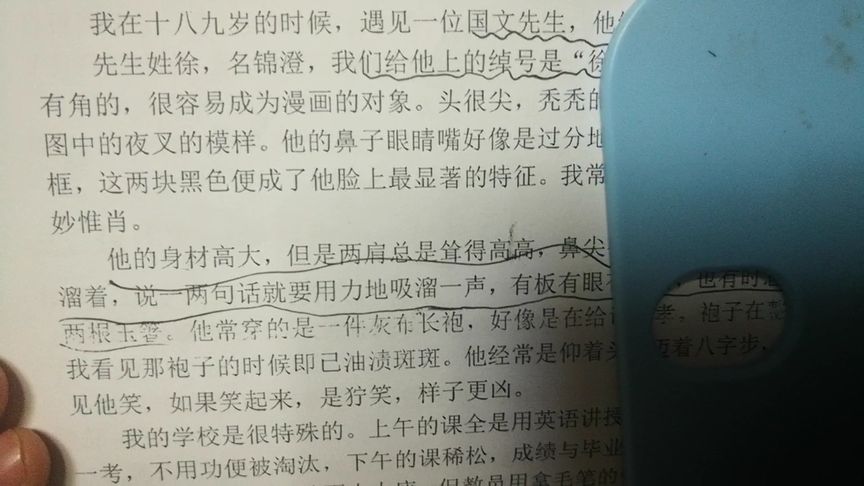 我在十八九岁的时候，遇见一位国文先生，他
先生姓徐，名锦澄，我们给他上的绰号是“徐
有角的，很容易成为漫画的对象。头很尖，秃秃的
图中的夜叉的模样。他的鼻子眼睛嘴好像是过分地
框，这两块黑色便成了他脸上最显著的特征。我常
妙惟肖。
他的身材高大，但是两肩总是耸得高高，鼻尖
溜着，说一两句话就要用力地吸溜一声，有板有眼 也有时
两根玉箸。他常穿的是一件灰布长袍，好像是在给 孝。袍子在
我看见那袍子的时候即已油渍斑斑。他经常是仰着头 迈着八字步，
见他笑，如果笑起来，是狞笑，样子更凶。
我的学校是很特殊的。上午的课全是用英语讲授
一考，不用功便被淘汰，下午的课稀松，成绩与毕业
但教员用拿毛笔的